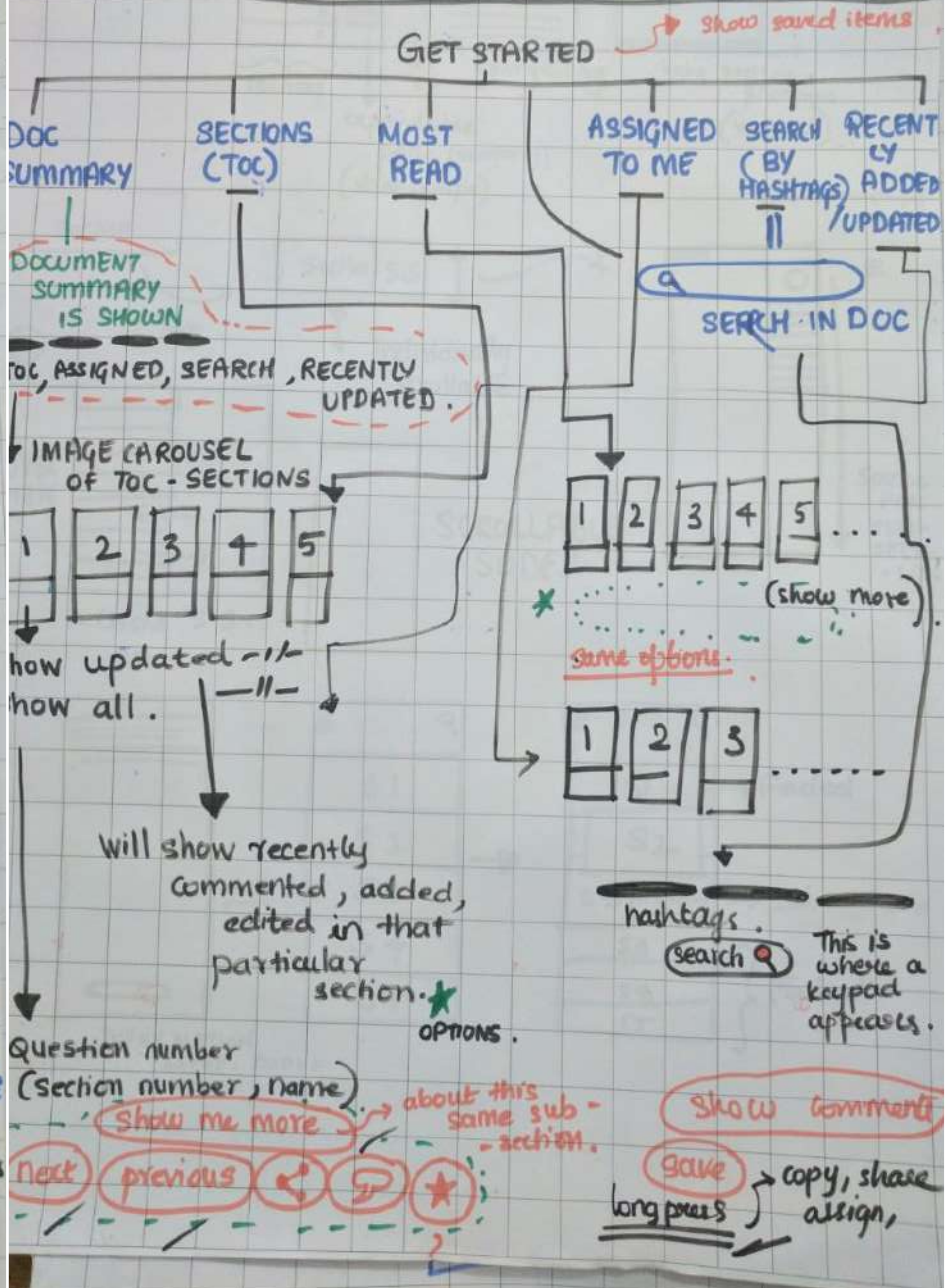 show saved items
GET STARTED
DOC
SUMMARY
SECTIONS
(TOC)
MOST
READ
ASSIGNED
TO ME
SEARCH
(BY
HASHTAGS)
RECENT
LY
ADDED
/UPDATED
DOCUMENT
SUMMARY
IS SHOWN
SEARCH IN DOC
TOC, ASSIGNED, SEARCH, RECENTLY
UPDATED.
IMAGE CAROUSEL
OF TOC - SECTIONS
1 2 3 4 5
1 2 3 4 5 ....
(show more)
how updated -1/-
-11-
how all.
same options.
1 2 3 .......
Will show recently
commented, added,
edited in that
particular
section.
OPTIONS.
hashtags.
search
This is
where a
keypad
appears.
Question number
(section number, name)
show me more
about this
same sub-
-section.
next previous
?
show comment
save
long press
copy, share
assign,